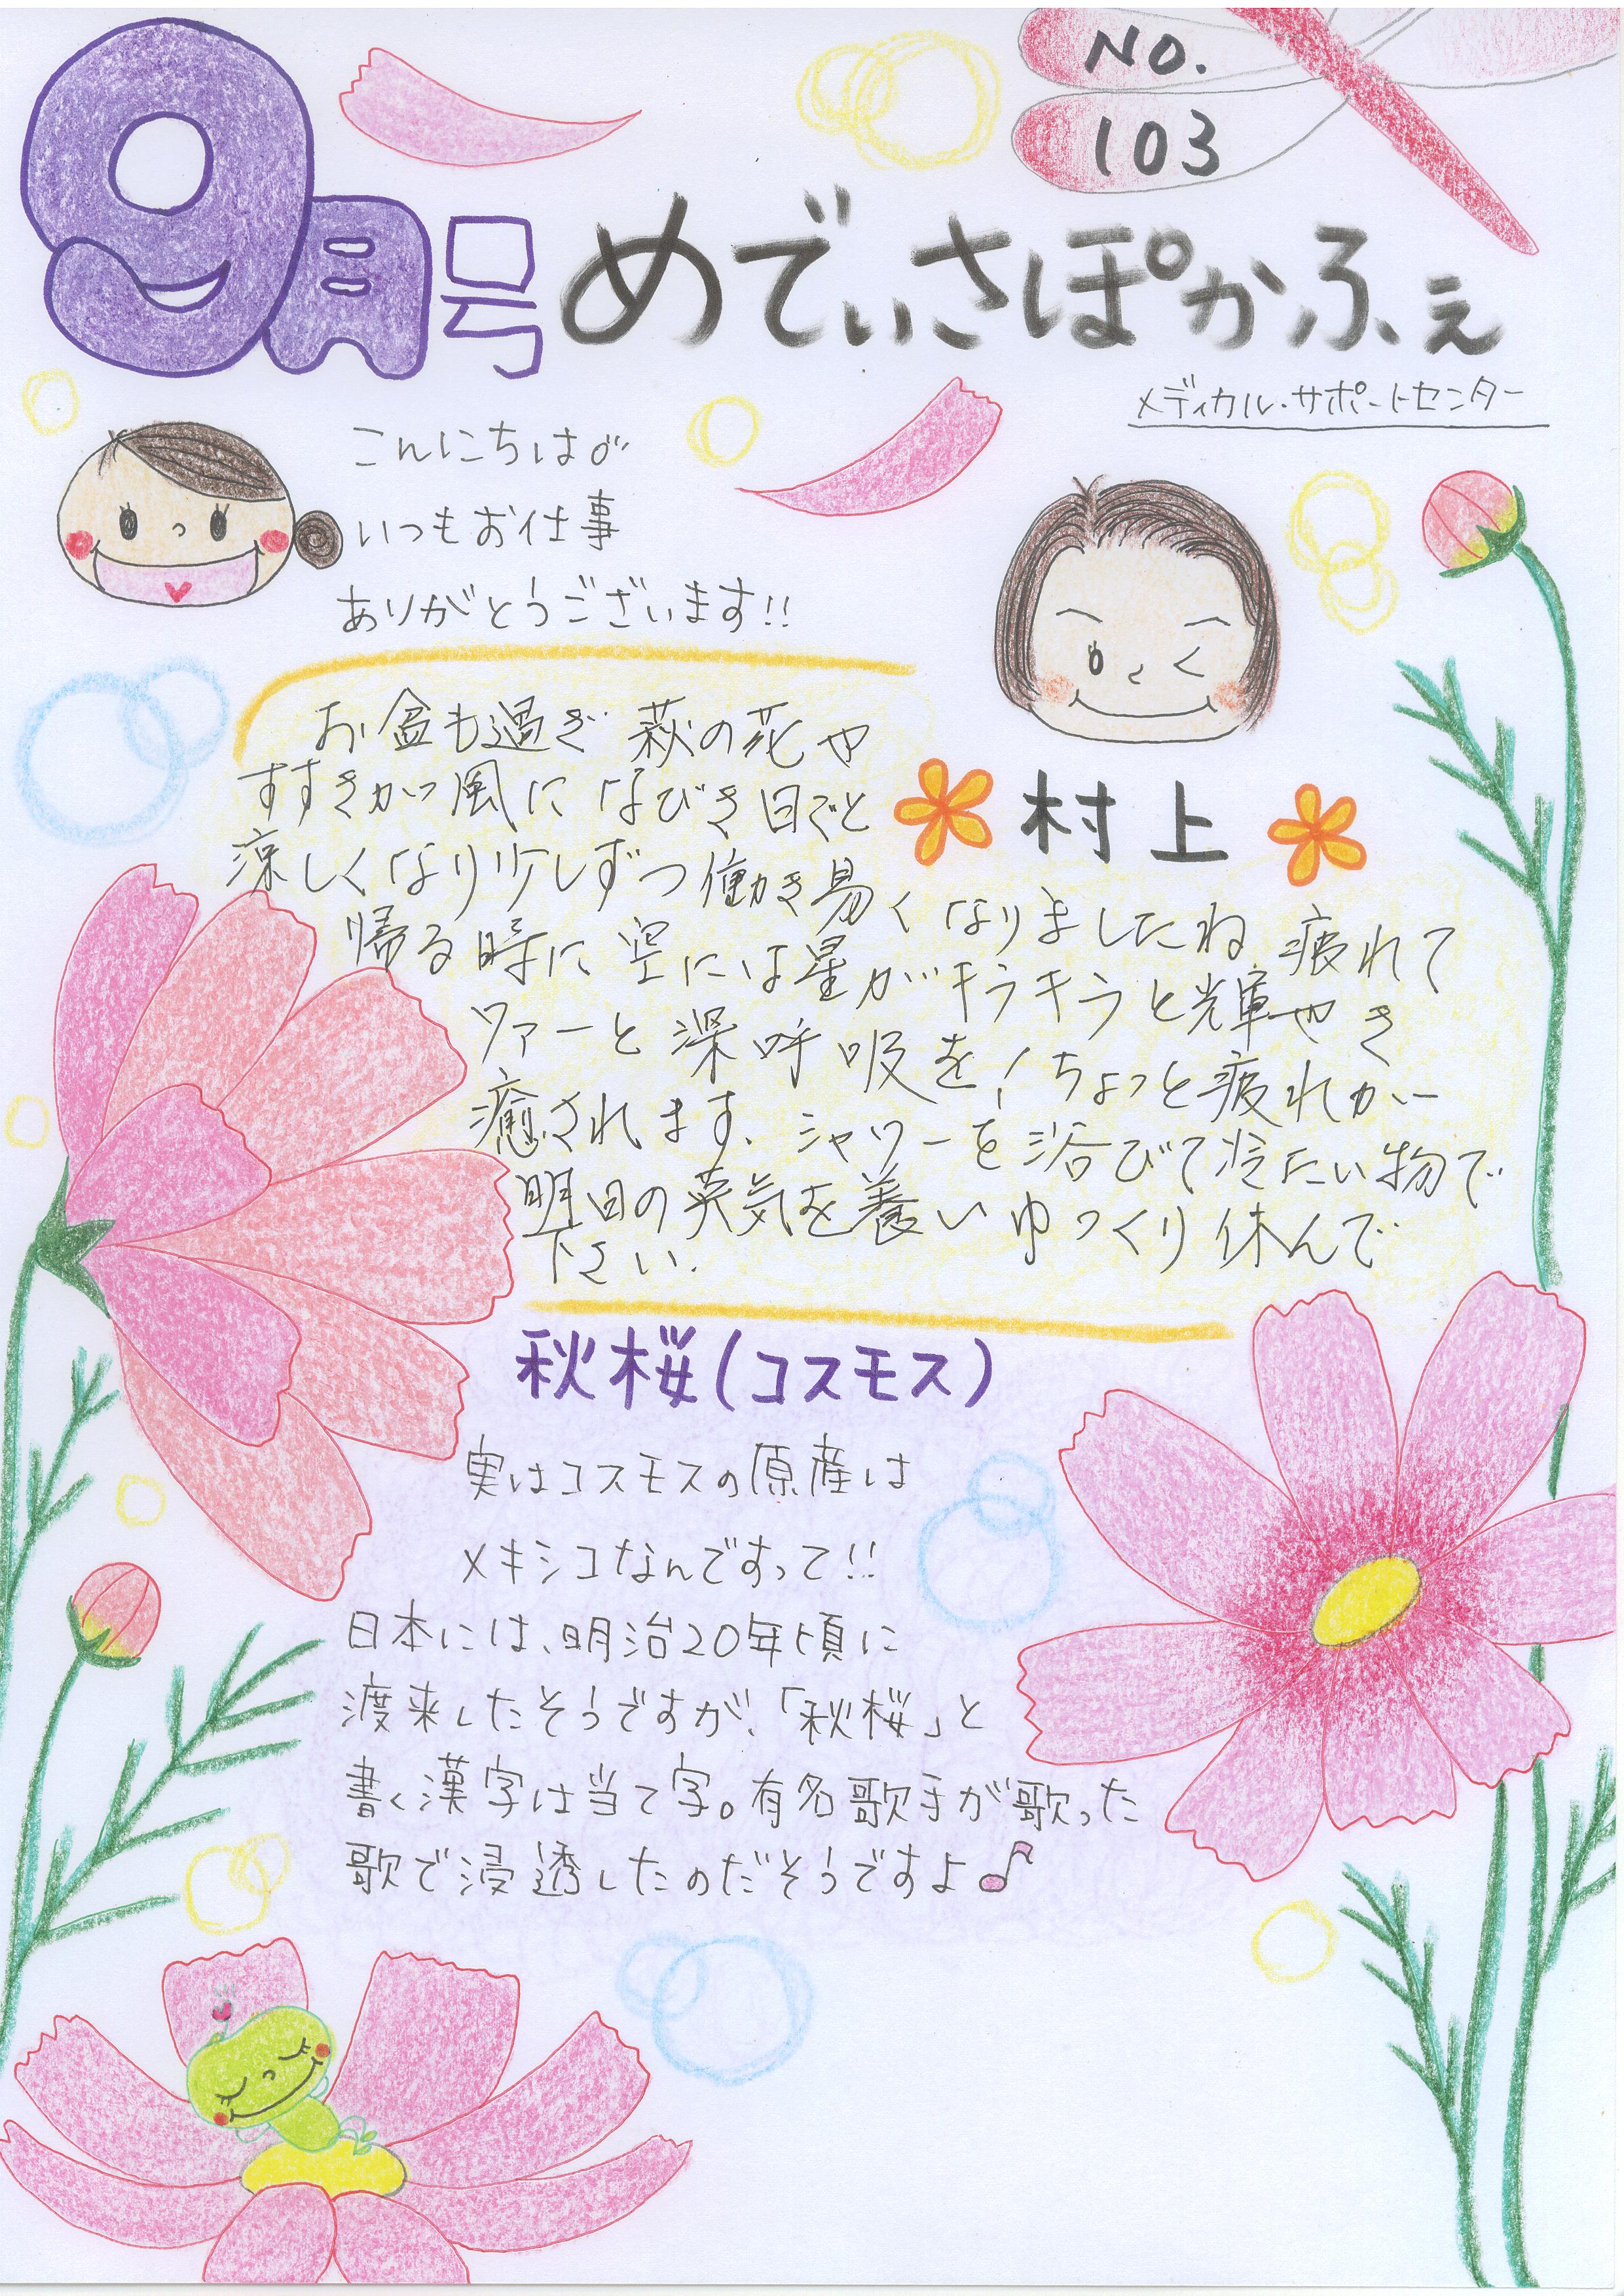 NO.
103
9月号 めでぃさぽかふぇ
メディカル・サポートセンター
こんにちは
いつもお仕事
ありがとうございます!!
お盆も過ぎ 萩の花や
すすきが風になびき日ごと
涼しくなり少しずつ働き易くなりましたね 疲れて
帰る時に空には星がキラキラと輝やき
ワァーと深呼吸を!ちょっと疲れが
癒されます、シャワーを浴びて冷たい物で
明日の英気を養いゆっくり休んで
下さい.
村上
秋桜(コスモス)
実はコスモスの原産は
メキシコなんですって!!
日本には、明治20年頃に
渡来したそうですが、「秋桜」と
書く漢字は当て字。有名歌手が歌った
歌で浸透したのだそうですよ♪